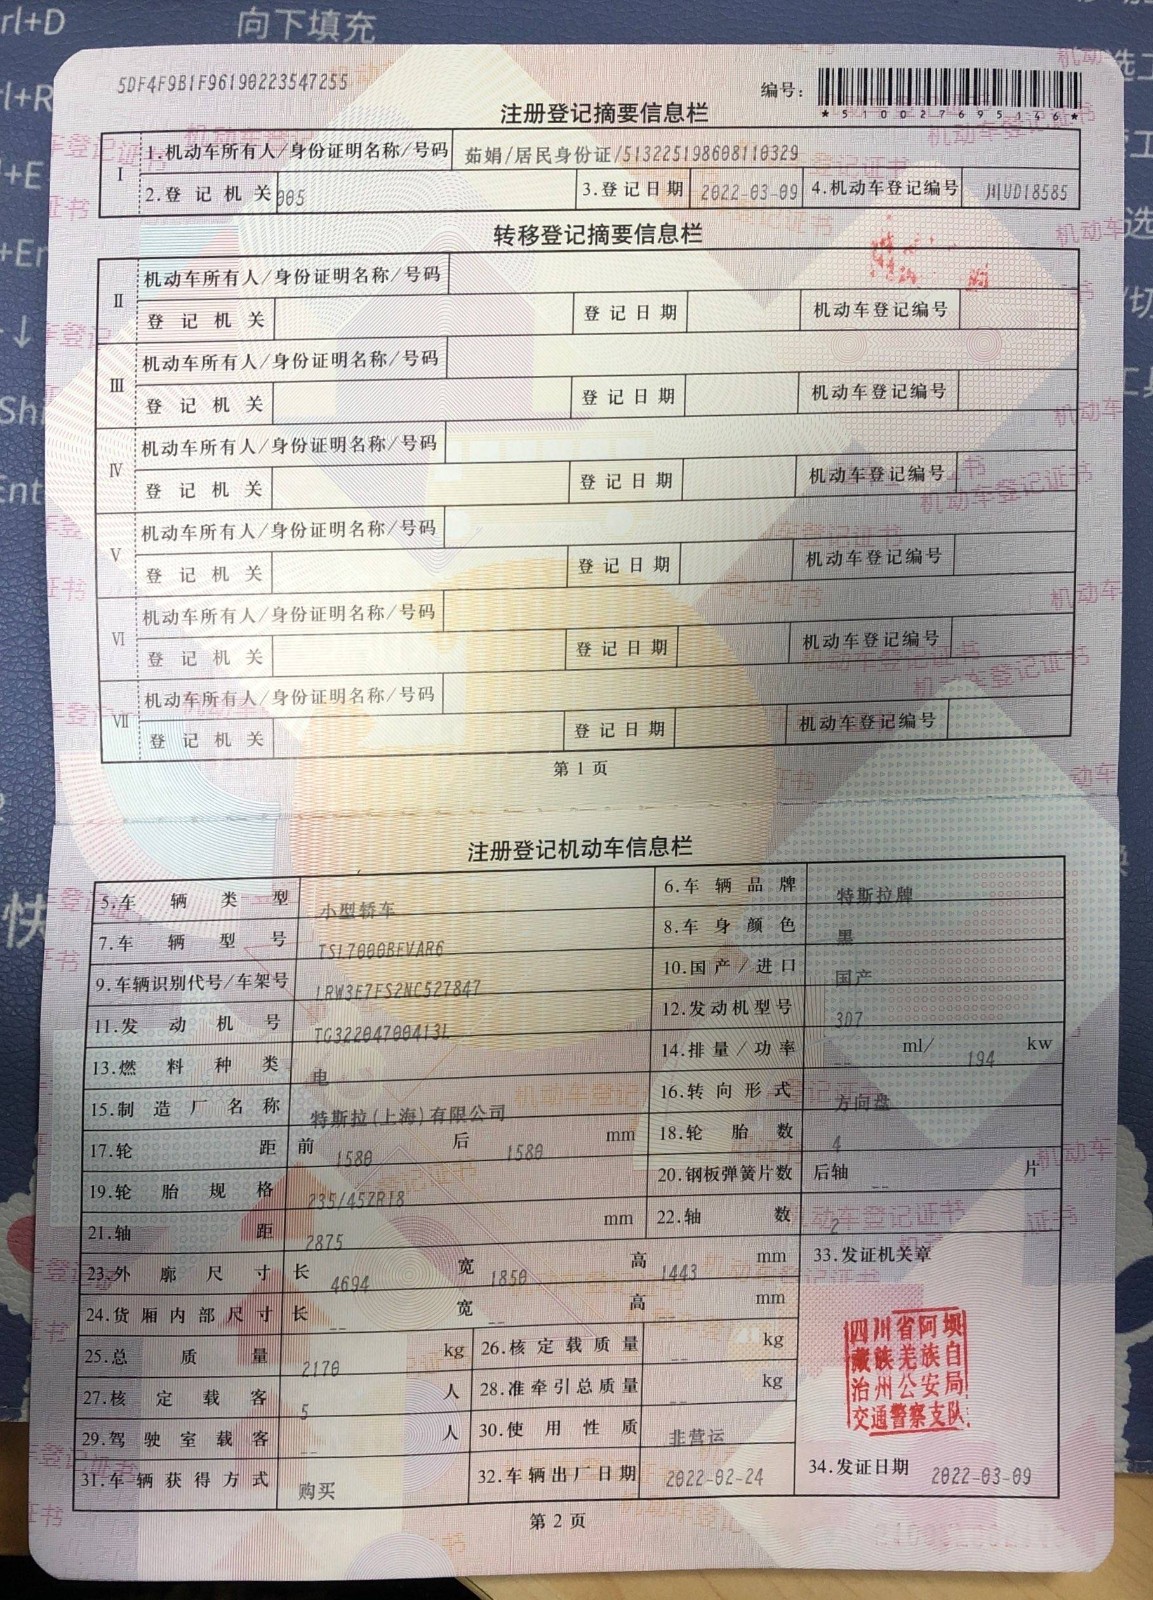 向下填充
5DF4F9B1F96190223547255
编号：
*510027695146*
注册登记摘要信息栏
I
1.机动车所有人/身份证明名称/号码 茹娟/居民身份证/513225198608110329
2.登记机关 005 3.登记日期 2022-03-09 4.机动车登记编号 川UD18585
转移登记摘要信息栏
II
机动车所有人/身份证明名称/号码
登记机关 登记日期 机动车登记编号
III
机动车所有人/身份证明名称/号码
登记机关 登记日期 机动车登记编号
IV
机动车所有人/身份证明名称/号码
登记机关 登记日期 机动车登记编号
V
机动车所有人/身份证明名称/号码
登记机关 登记日期 机动车登记编号
VI
机动车所有人/身份证明名称/号码
登记机关 登记日期 机动车登记编号
VII
机动车所有人/身份证明名称/号码
登记机关 登记日期 机动车登记编号
第1页
注册登记机动车信息栏
5.车辆类型 小型轿车 6.车辆品牌 特斯拉牌
7.车辆型号 TSL7000BEVAR6 8.车身颜色 黑
9.车辆识别代号/车架号 LRW3E7FS2NC527847 10.国产/进口 国产
11.发动机号 TG32204700413L 12.发动机型号 3D7
13.燃料种类 电 14.排量/功率 -- ml/ 194 kw
15.制造厂名称 特斯拉(上海)有限公司 16.转向形式 方向盘
17.轮距 前 1580 后 1580 mm 18.轮胎数 4
19.轮胎规格 235/45ZR18 20.钢板弹簧片数 后轴 -- 片
21.轴距 2875 mm 22.轴数 2
23.外廓尺寸 长 4694 宽 1850 高 1443 mm 33.发证机关章
24.货厢内部尺寸 长 -- 宽 -- 高 -- mm
25.总质量 2170 kg 26.核定载质量 -- kg
27.核定载客 5 人 28.准牵引总质量 -- kg
29.驾驶室载客 -- 人 30.使用性质 非营运
31.车辆获得方式 购买 32.车辆出厂日期 2022-02-24 34.发证日期 2022-03-09
四川省阿坝
藏族羌族自
治州公安局
交通警察支队
第2页